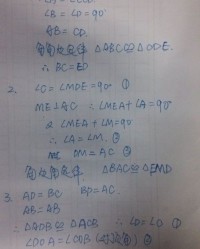 ∠B = ∠D = 90°
AB = CD.
△ABC ≌ △CDE.
∴ BC = ED
2. ∠C = ∠MDE = 90° ①
ME⊥AC ∴ ∠MEA + ∠A = 90°
又 ∠MEA + ∠M = 90°
∴ ∠A = ∠M. ②
DM = AC ③
△BAC ≌ △EMD
3. AD = BC BD = AC.
AB = AB
∴ △ADB ≌ △AOB ∴ ∠D = ∠C ①
∠DOA = ∠COB (对顶角) ②